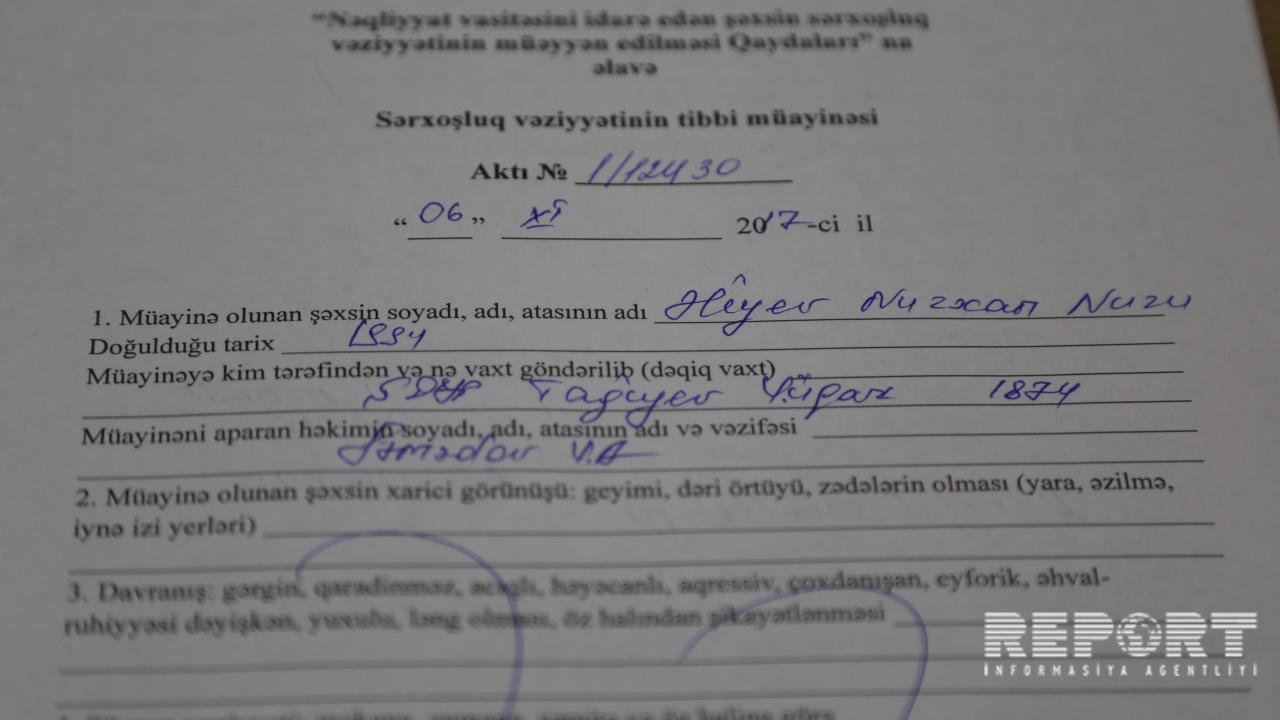 “Nəqliyyat vasitəsini idarə edən şəxsin sərxoşluq
vəziyyətinin müəyyən edilməsi Qaydaları” na
əlavə
Sərxoşluq vəziyyətinin tibbi müayinəsi
Aktı № 1/12430
“ 06 ” XI 2017-ci il
1. Müayinə olunan şəxsin soyadı, adı, atasının adı
Doğulduğu tarix 1994
Müayinəyə kim tərəfindən və nə vaxt göndərilib (dəqiq vaxt)
Tağıyev 1874
Müayinəni aparan həkimin soyadı, adı, atasının adı və vəzifəsi
V.A
2. Müayinə olunan şəxsin xarici görünüşü: geyimi, dəri örtüyü, zədələrin olması (yara, əzilmə,
iynə izi yerləri)
3. Davranış: gərgin, qaradinməz, acıqlı, həyəcanlı, aqressiv, çoxdanışan, eyforik, əhval-
ruhiyyəsi dəyişkən, yuxulu, ləng olması, öz halından şikayətlənməsi
REPORT
İNFORMASİYA AGENTLİYİ